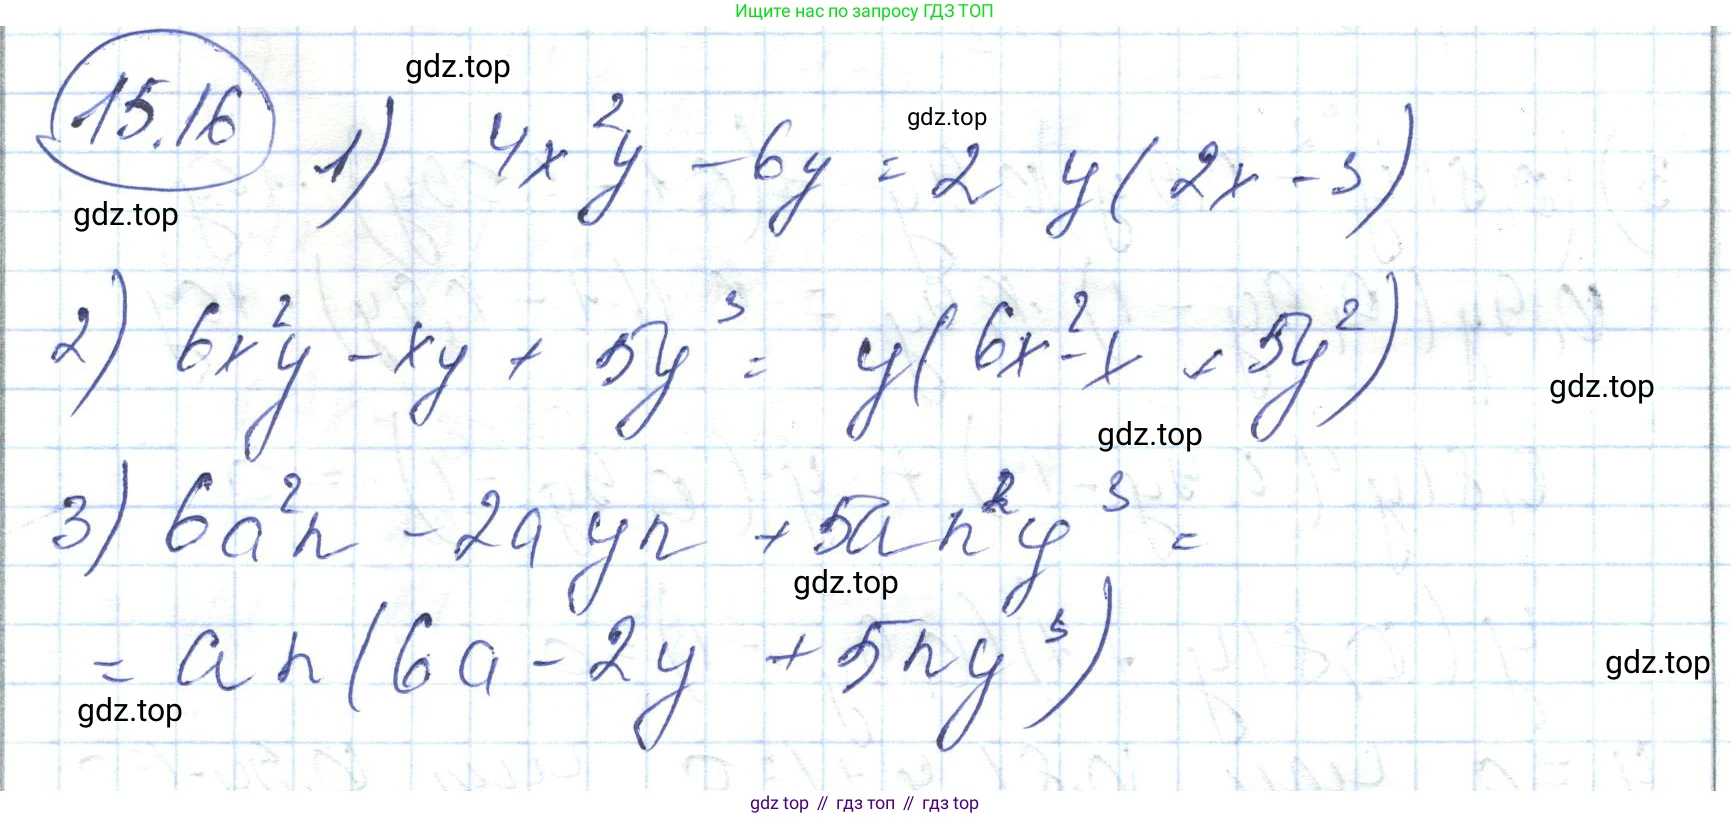 Ищите нас по запросу ГДЗ ТОП
gdz.top
15.16 1) 4x²y - 6y = 2 y(2x - 3)
gdz.top
gdz.top
2) 6x²y - xy + 5y³ = y(6x² - x + 5y²)
gdz.top
gdz.top
3) 6a²n - 2ayn + 5an²y³ =
gdz.top
= an(6a - 2y + 5ny³)
gdz.top
gdz.top
gdz top // гдз топ // гдз top